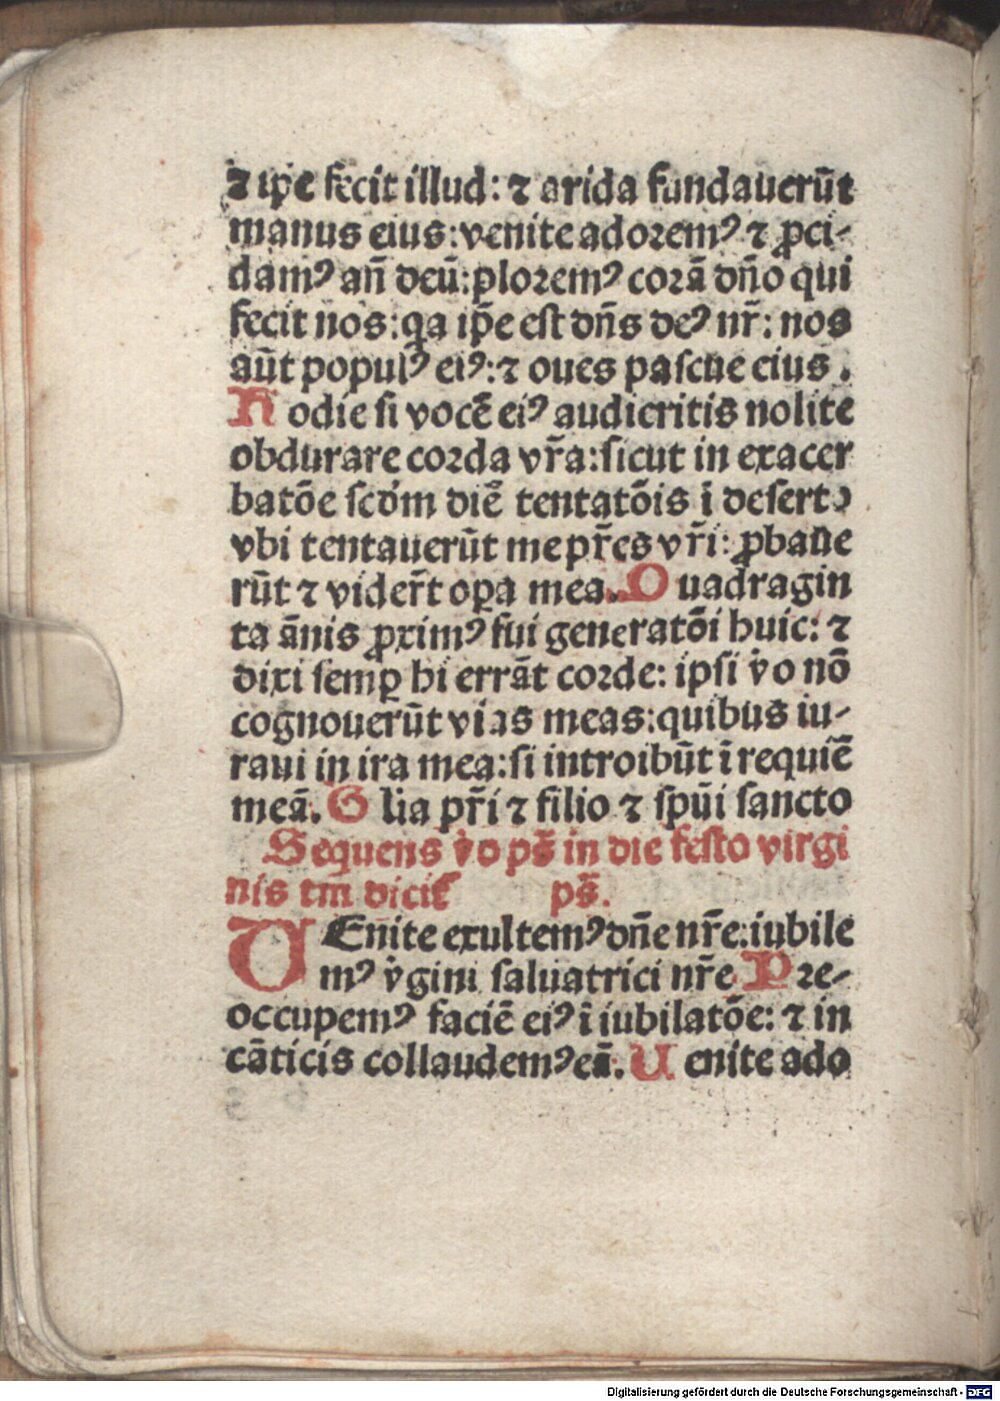 ⁊ ip̄e fecit illud: ⁊ arida fundauerūt
manus eius: venite adoremꝰ ⁊ ꝓci-
damꝰ an̄ deū: ploremꝰ corā dn̄o qui
fecit nos: qa ip̄e est dn̄s deꝰ nr̄: nos
aūt populꝰ eiꝰ: ⁊ oues pascue eius.
Hodie si vocē eiꝰ audieritis nolite
obdurare corda vr̄a: sicut in exacer
batōe scd'm diē tentatōis ī deserto
vbi tentauerūt me pr̄es vr̄i: ꝓbaue
rūt ⁊ vider̄t oꝑa mea. Quadragin
ta ānis ꝓximꝰ fui generatōi huic: ⁊
dixi semꝑ hi errāt corde: ipsi v̓o nō
cognouerūt vias meas: quibus iu-
raui in ira mea: si introibūt ī requiē
meā. Glia pr̄i ⁊ filio ⁊ spūi sancto
Sequens v̓o pš in die festo virgi
nis tm̄ dicit᷑ pš.
VEnite exultemꝰ dn̄e nr̄e: iubile
mꝰ v̓gini saluatrici nr̄e Pre-
occupemꝰ faciē eiꝰ ī iubilatōe: ⁊ in
cāticis collaudemꝰ eā. Uenite ado
Digitalisierung gefördert durch die Deutsche Forschungsgemeinschaft - DFG